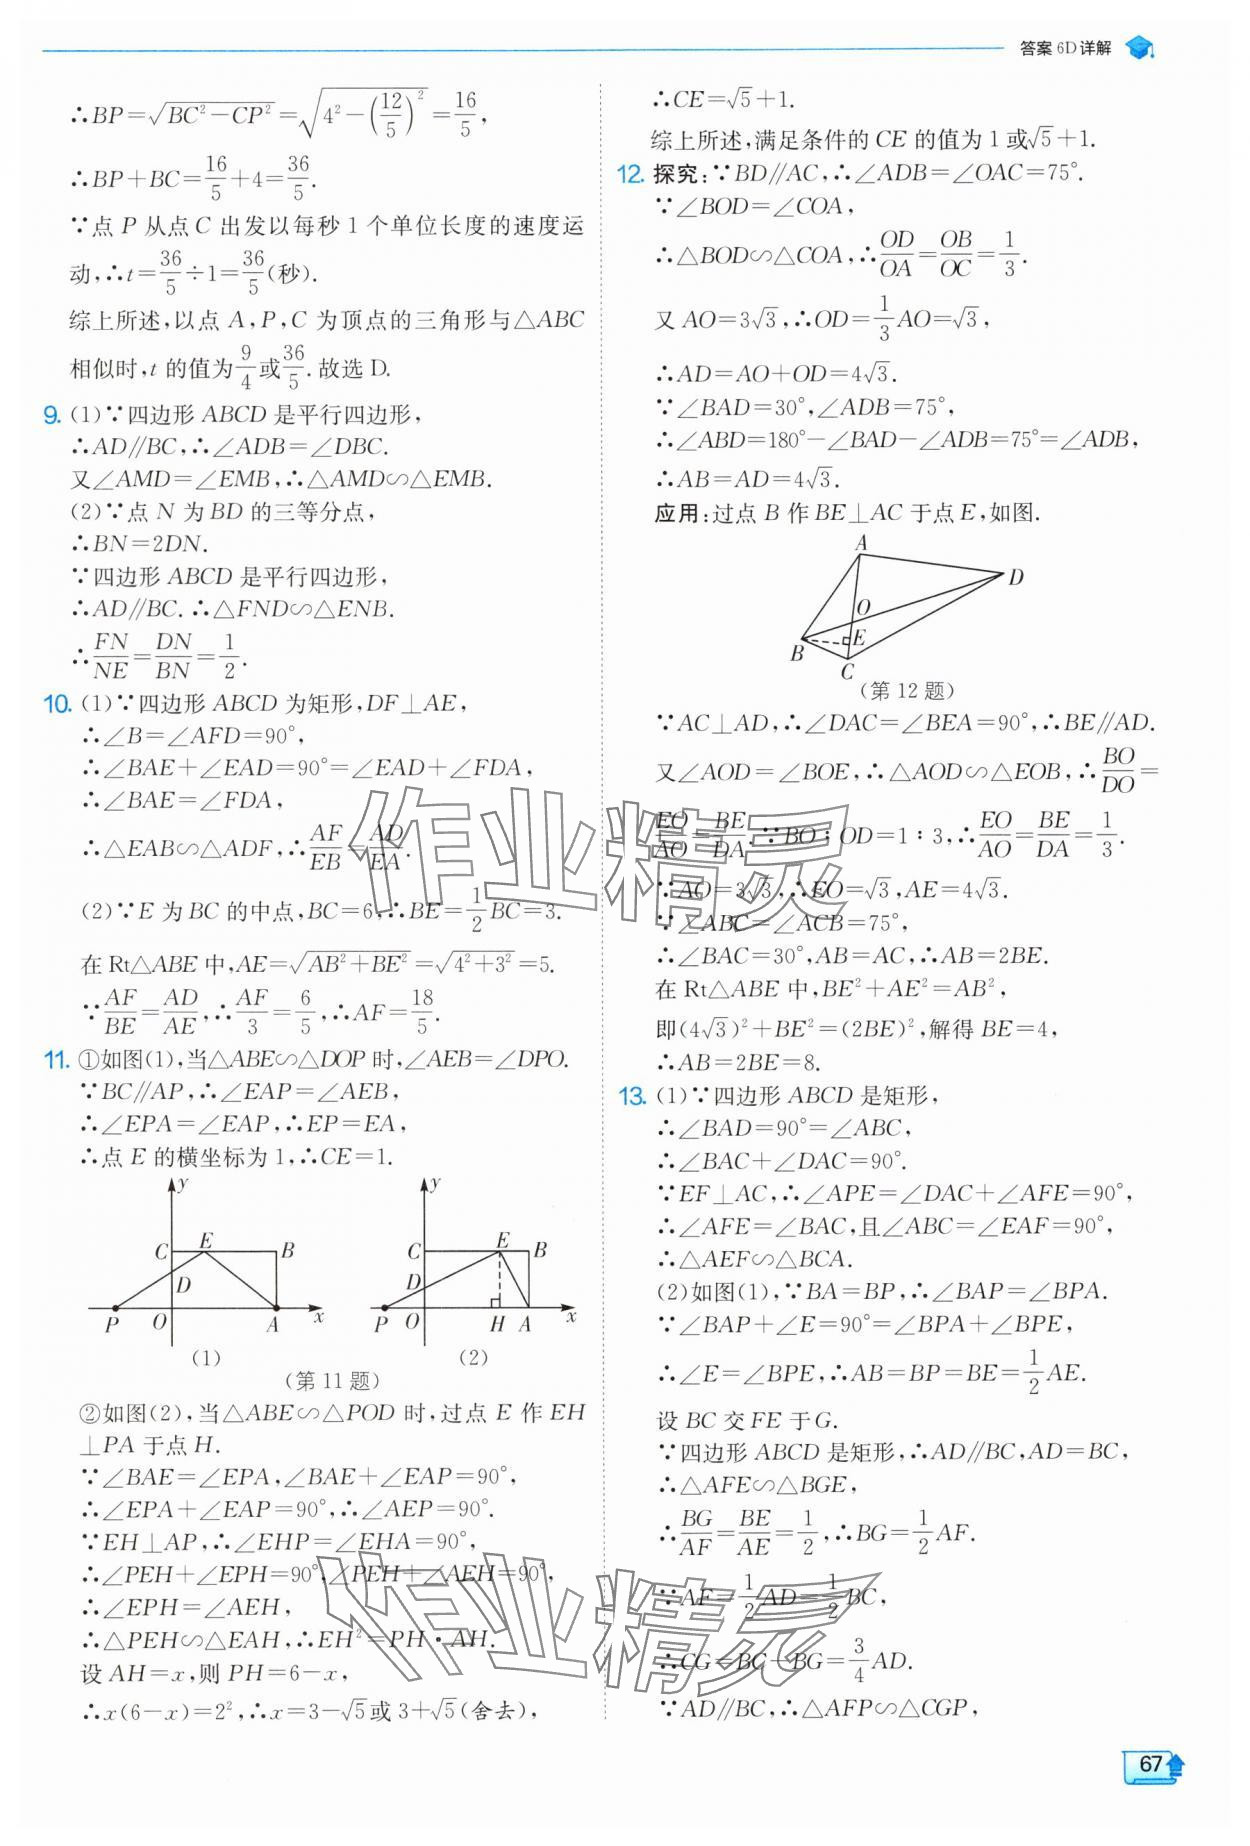 答案 6D详解
∴BP=√(BC²-CP²)=√(4²-(12/5)²)=16/5,
∴BP+BC=16/5+4=36/5.
∵点 P 从点 C 出发以每秒 1 个单位长度的速度运
动,∴t=36/5÷1=36/5(秒).
综上所述,以点 A,P,C 为顶点的三角形与△ABC
相似时,t 的值为9/4或36/5.故选 D.
9. (1)∵四边形 ABCD 是平行四边形,
∴AD∥BC,∴∠ADB=∠DBC.
又∠AMD=∠EMB,∴△AMD∽△EMB.
(2)∵点 N 为 BD 的三等分点,
∴BN=2DN.
∵四边形 ABCD 是平行四边形,
∴AD∥BC.∴△FND∽△ENB.
∴FN/NE=DN/BN=1/2.
10. (1)∵四边形 ABCD 为矩形,DF⊥AE,
∴∠B=∠AFD=90°,
∴∠BAE+∠EAD=90°=∠EAD+∠FDA,
∴∠BAE=∠FDA,
∴△EAB∽△ADF,∴AF/EB=AD/EA.
(2)∵E 为 BC 的中点,BC=6,∴BE=1/2BC=3.
在 Rt△ABE 中,AE=√(AB²+BE²)=√(4²+3²)=5.
∵AF/BE=AD/AE,∴AF/3=6/5,∴AF=18/5.
11. ①如图(1),当△ABE∽△DOP 时,∠AEB=∠DPO.
∵BC∥AP,∴∠EAP=∠AEB,
∴∠EPA=∠EAP,∴EP=EA,
∴点 E 的横坐标为 1,∴CE=1.
y
C E B
D
P O A x
(1)
y
C E B
D
P O H A x
(2)
(第 11 题)
②如图(2),当△ABE∽△POD 时,过点 E 作 EH
⊥PA 于点 H.
∵∠BAE=∠EPA,∠BAE+∠EAP=90°,
∴∠EPA+∠EAP=90°,∴∠AEP=90°.
∵EH⊥AP,∴∠EHP=∠EHA=90°,
∴∠PEH+∠EPH=90°,∠PEH+∠AEH=90°,
∴∠EPH=∠AEH,
∴△PEH∽△EAH,∴EH²=PH·AH.
设 AH=x,则 PH=6-x,
∴x(6-x)=2²,∴x=3-√5或 3+√5(舍去),
∴CE=√5+1.
综上所述,满足条件的 CE 的值为 1 或√5+1.
12. 探究:∵BD∥AC,∴∠ADB=∠OAC=75°.
∵∠BOD=∠COA,
∴△BOD∽△COA,∴OD/OA=OB/OC=1/3.
又 AO=3√3,∴OD=1/3AO=√3,
∴AD=AO+OD=4√3.
∵∠BAD=30°,∠ADB=75°,
∴∠ABD=180°-∠BAD-∠ADB=75°=∠ADB,
∴AB=AD=4√3.
应用:过点 B 作 BE⊥AC 于点 E,如图.
A
D
O
E
B
C
(第 12 题)
∵AC⊥AD,∴∠DAC=∠BEA=90°,∴BE∥AD.
又∠AOD=∠BOE,∴△AOD∽△EOB,∴BO/DO=
EO/AO=BE/DA.∵BO∶OD=1∶3,∴EO/AO=BE/DA=1/3.
∵AO=3√3,∴EO=√3,AE=4√3.
∵∠ABC=∠ACB=75°,
∴∠BAC=30°,AB=AC,∴AB=2BE.
在 Rt△ABE 中,BE²+AE²=AB²,
即(4√3)²+BE²=(2BE)²,解得 BE=4,
∴AB=2BE=8.
13. (1)∵四边形 ABCD 是矩形,
∴∠BAD=90°=∠ABC,
∴∠BAC+∠DAC=90°.
∵EF⊥AC,∴∠APE=∠DAC+∠AFE=90°,
∴∠AFE=∠BAC,且∠ABC=∠EAF=90°,
∴△AEF∽△BCA.
(2)如图(1),∵BA=BP,∴∠BAP=∠BPA.
∵∠BAP+∠E=90°=∠BPA+∠BPE,
∴∠E=∠BPE,∴AB=BP=BE=1/2AE.
设 BC 交 FE 于 G.
∵四边形 ABCD 是矩形,∴AD∥BC,AD=BC,
∴△AFE∽△BGE,
∴BG/AF=BE/AE=1/2,∴BG=1/2AF.
∵AF=1/2AD=1/2BC,
∴CG=BC-BG=3/4AD.
∵AD∥BC,∴△AFP∽△CGP,
67
作业精灵
作业精灵